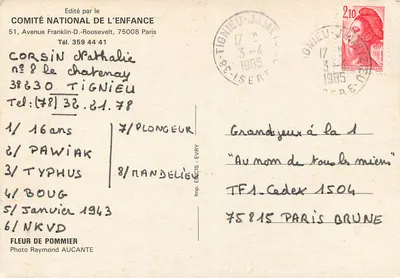 Edité par le
COMITÉ NATIONAL DE L'ENFANCE
51, Avenue Franklin-D.-Roosevelt, 75008 Paris
Tél. 359 44 41
CORSIN Nathalie
n° 8 le chatenay
38230 TIGNIEU
Tel: (78) 32.21.78
1/ 16 ans
2/ PAWIAK
3/ TYPHUS
4/ BOUG
5/ Janvier 1943
6/ NKVD
7/ PLONGEUR
8/ MANDELIEU
FLEUR DE POMMIER
Photo Raymond AUCANTE
TIGNIEU-JAME
17 H
3-4
1985
38-ISERE
TIGNIEU-JAM
17 H
3-
1985
ISERE-
2,10
Grand jeux à la 1
"Au nom de tous les miens"
TF1. Cedex 1504
75815 PARIS BRUNE